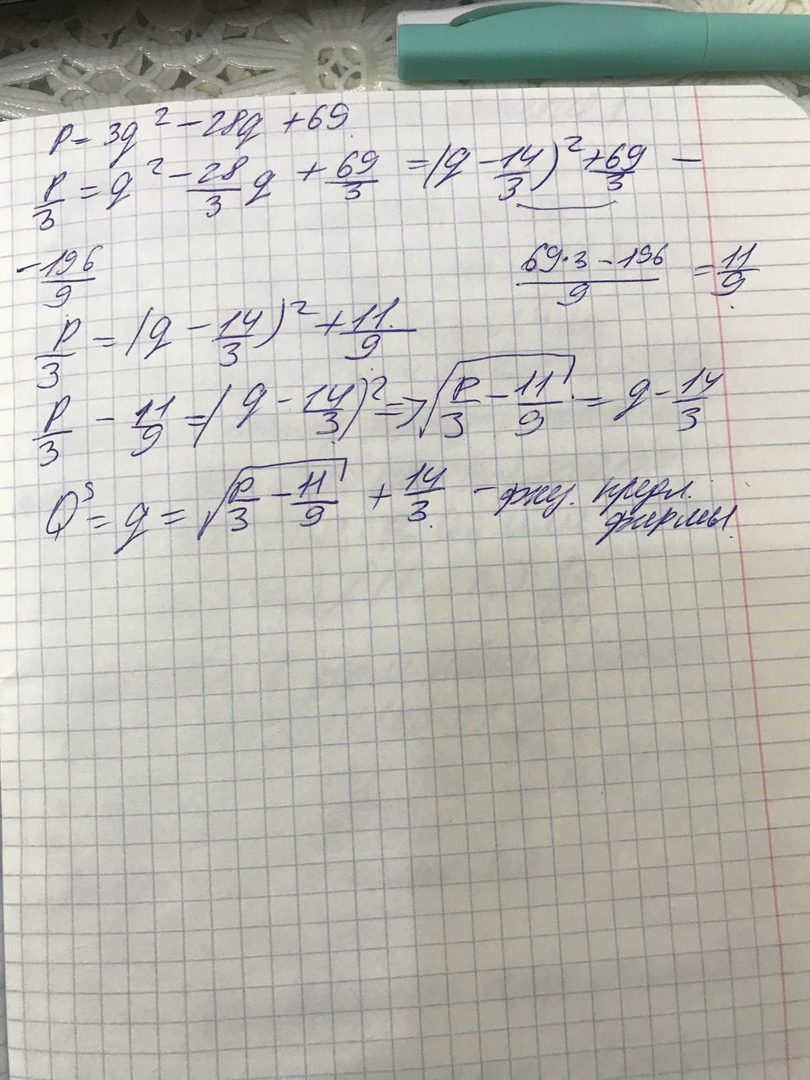 P = 3q² - 28q + 69
P/3 = q² - 28/3 q + 69/3 = (q - 14/3)² + 69/3 -
- 196/9 (69·3 - 196)/9 = 11/9
P/3 = (q - 14/3)² + 11/9
P/3 - 11/9 = (q - 14/3)² => √(P/3 - 11/9) = q - 14/3
Qˢ = q = √(P/3 - 11/9) + 14/3 - фку. предл.
фирмы